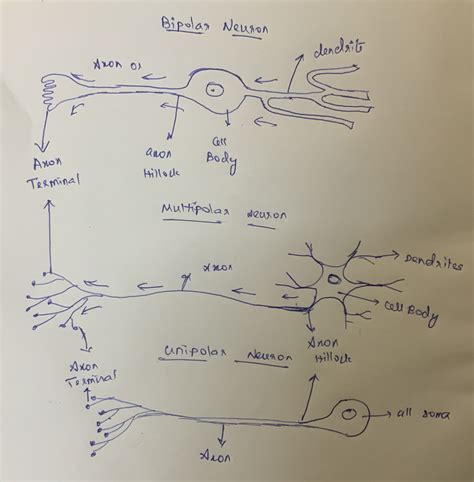 Bipolar Neuron
dendrite
Axon os
Axon
Terminal
axon
Hillock
Cell
Body
Multipolar neuron
Axon
Dendrites
Cell Body
Axon
Hillock
Unipolar Neuron
Axon
Terminal
cell soma
Axon